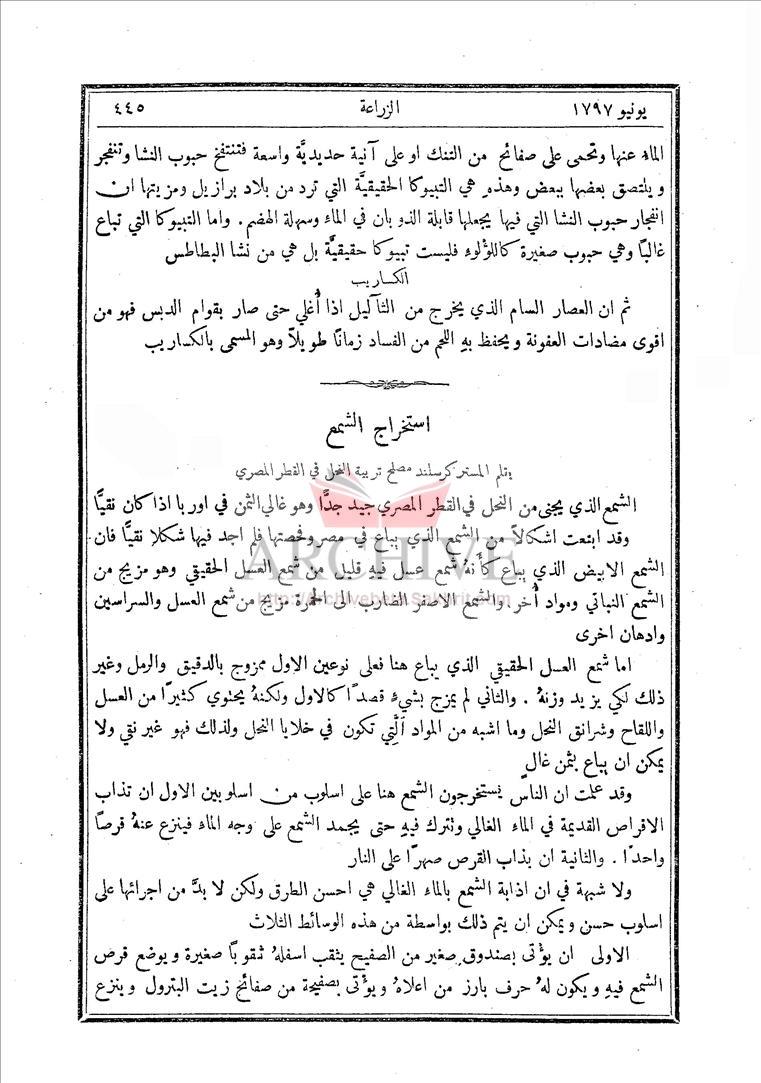 يونيو ١٧٩٧ الزراعة ٤٤٥
الماء عنها وتحمى على صفائح من التنك او على آنية حديديَّة واسعة فتنتفخ حبوب النشا وتنفجر
ويلتصق بعضها ببعض وهذه هي التبيوكا الحقيقيَّة التي ترد من بلاد برازيل ومزيتها ان
انفجار حبوب النشا التي فيها يجعلها قابلة الذوبان في الماء وسهلة الهضم. واما التبيوكا التي تباع
غالبًا وهي حبوب صغيرة كاللؤلوء فليست تبيوكا حقيقيَّة بل هي من نشا البطاطس
الكساريب
ثم ان العصار السام الذي يخرج من الثآليل اذا أُغلي حتى صار بقوام الدبس فهو من
اقوى مضادات العفونة ويحفظ بهِ اللحم من الفساد زمانًا طويلاً وهو المسمى بالكساريب
استخراج الشمع
بقلم المستر كرسلند مصلح تربية النحل في القطر المصري
الشمع الذي يجنى من النحل في القطر المصري جيد جدًّا وهو غالي الثمن في اوربا اذا كان نقيًّا
وقد ابتعت اشكالاً من الشمع الذي يباع في مصر وفحصتها فلم اجد فيها شكلا نقيًّا فان
الشمع الابيض الذي يباع كأَنهُ شمع عسل فيهِ قليل من شمع العسل الحقيقي وهو مزيج من
الشمع النباتي ومواد أُخر. والشمع الاصفر الضارب الى الحمرة مزيج من شمع العسل والسراسين
وادهان اخرى
اما شمع العسل الحقيقي الذي يباع هنا فعلى نوعين الاول ممزوج بالدقيق والرمل وغير
ذلك لكي يزيد وزنهُ. والثاني لم يمزج بشيءٍ قصدًا كالاول ولكنهُ يحتوي كثيرًا من العسل
واللقاح وشرانق النحل وما اشبه من المواد اَلَّتِي تكون في خلايا النحل ولذلك فهو غير نقي ولا
يمكن ان يباع بثمن غالٍ
وقد علمت ان الناس يستخرجون الشمع هنا على اسلوب من اسلوبين الاول ان تذاب
الاقراص القديمة في الماء الغالي ونترك فيهِ حتى يجمد الشمع على وجه الماء فينزع عنهُ قرصًا
واحدًا. والثانية ان يذاب القرص صهرًا على النار
ولا شبهة في ان اذابة الشمع بالماء الغالي هي احسن الطرق ولكن لا بدَّ من اجرائها على
اسلوب حسن ويمكن ان يتم ذلك بواسطة من هذه الوسائط الثلاث
الاولى ان يؤتى بصندوق صغير من الصفيح يثقب اسفلهُ ثقوبًا صغيرة ويوضع قرص
الشمع فيهِ ويكون لهُ حرف بارز من اعلاهُ ويؤتى بصفيحة من صفائح زيت البترول وينزع
ARCHIVE
http://Archivebeta.Sakhrit.com